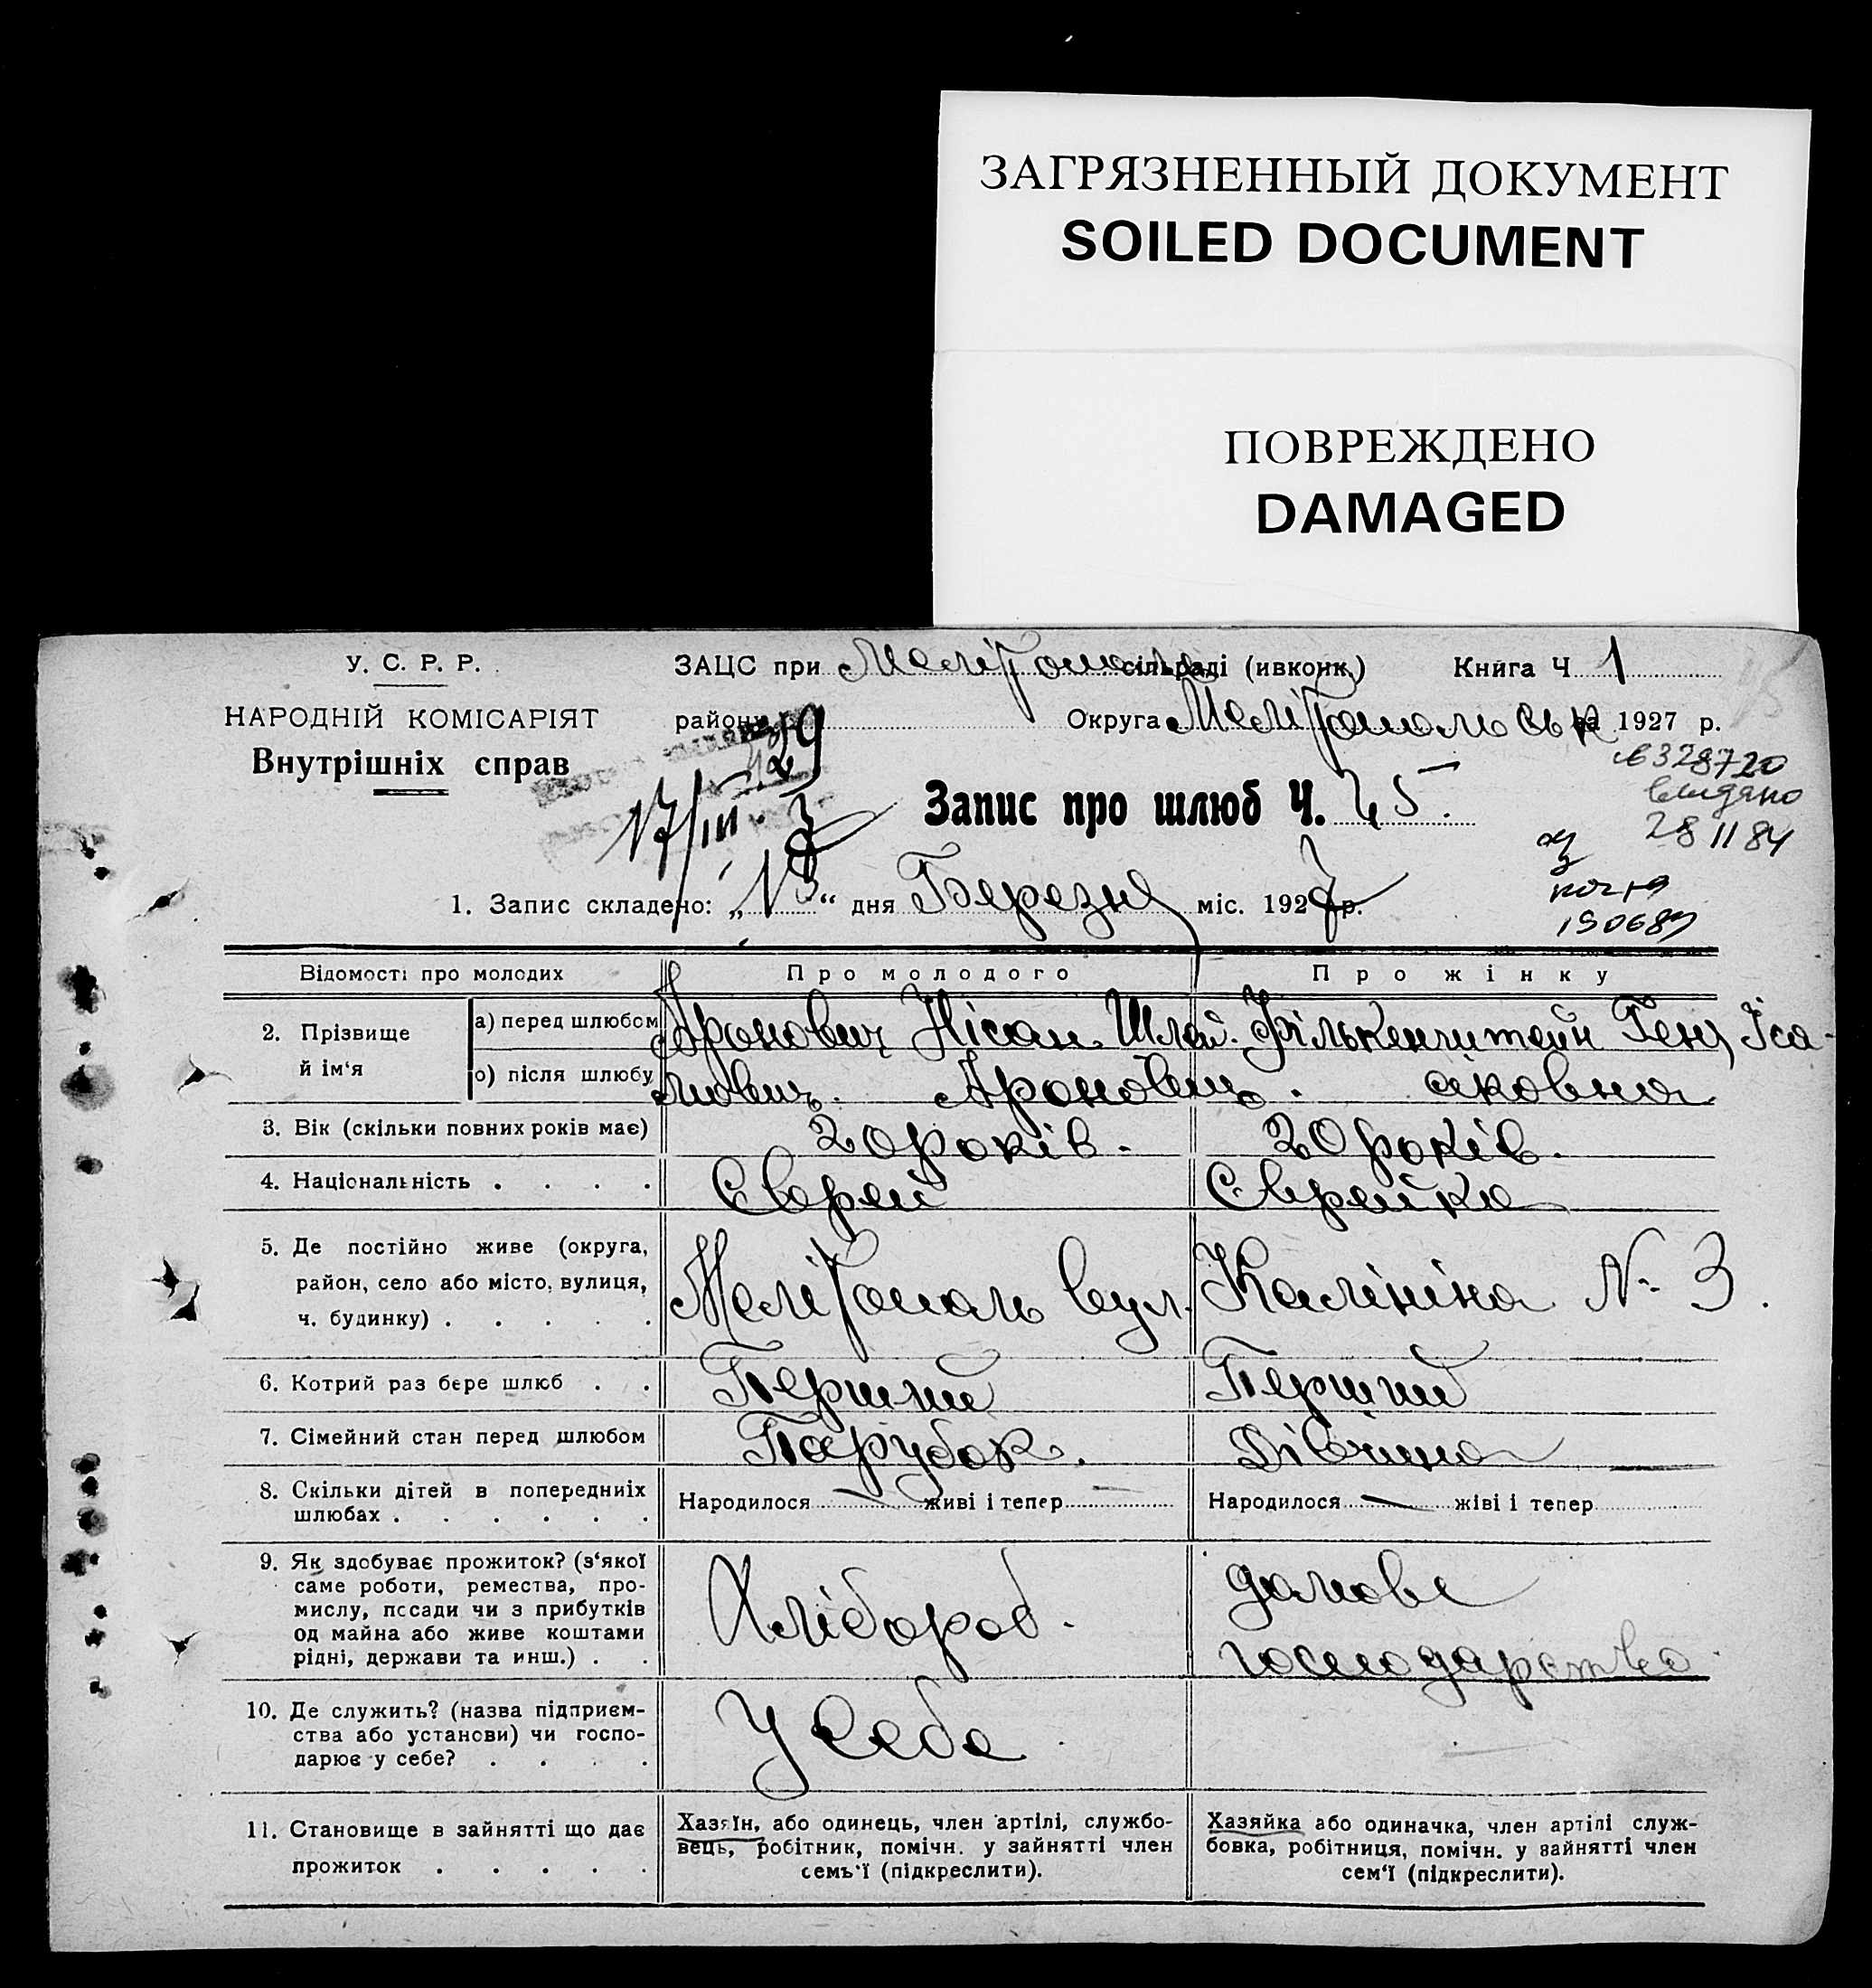 ЗАГРЯЗНЕННЫЙ ДОКУМЕНТ
SOILED DOCUMENT
ПОВРЕЖДЕНО
DAMAGED
У. С. Р. Р.
НАРОДНІЙ КОМІСАРІЯТ
Внутрішніх справ
ЗАЦС при сільраді (ивконк.) Книга Ч 1
району Округа Мелітопольськ за 1927 р.
328720
видано
28 11 84
17/III. 7
Запис про шлюб Ч. 25.
150689
1. Запис складено: „13“ дня Березня міс. 1927 р.
Відомості про молодих Про молодого Про жінку
2. Прізвище й ім‘я
а) перед шлюбом Аронович Нісан Шлей- Фількенштейн Геня Іса-
о) після шлюбу мович. Аронович. аковна
3. Вік (скільки повних років має) 20 років. 20 років.
4. Національність . . . . Єврей Єврейка
5. Де постійно живе (округа,
район, село або місто, вулиця,
ч. будинку) . . . . . Мелітополь вул. Калініна № 3.
6. Котрий раз бере шлюб . . Перший Перший
7. Сімейний стан перед шлюбом Парубок. Дівчина
8. Скільки дітей в попередниіх
шлюбах . . . . . . Народилося — живі і тепер — Народилося — жіві і тепер
9. Як здобуває прожиток? (з‘якої
саме роботи, ремества, про-
мислу, посади чи з прибутків
од майна або живе коштами
рідні, держави та инш.) . . Хлібороб. домове
господарство.
10. Де служить? (назва підприєм-
ства або установи) чи госпо-
дарює у себе? . . . . У себе
11. Становище в зайнятті що дає
прожиток . . . . .
Хазяїн, або одинець, член артілі, службо-
вець, робітник, помічн. у зайнятті член
семь‘ї (підкреслити).
Хазяйка або одиначка, член артілі служ-
бовка, робітниця, помічн. у зайнятті член
сем‘ї (підкреслити).